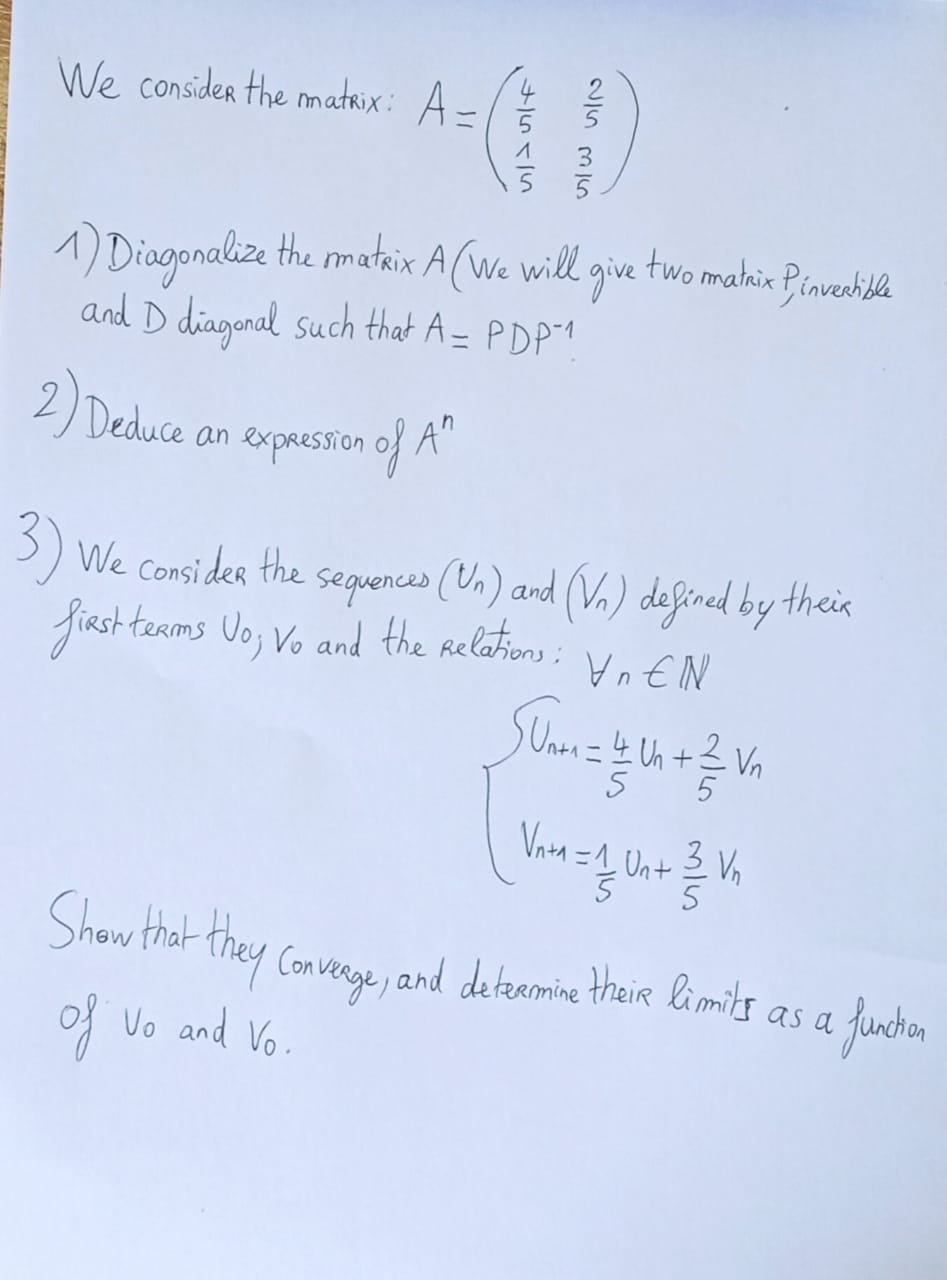 We consider the matrix: A = (4/5 2/5
1/5 3/5)
1) Diagonalize the matrix A (We will give two matrix P, invertible
and D diagonal such that A = PDP⁻¹.
2) Deduce an expression of Aⁿ
3) We consider the sequences (Un) and (Vn) defined by their
first terms U0; V0 and the relations: ∀n ∈ ℕ
{Un+1 = 4/5 Un + 2/5 Vn
Vn+1 = 1/5 Un + 3/5 Vn
Show that they converge, and determine their limits as a function
of U0 and V0.